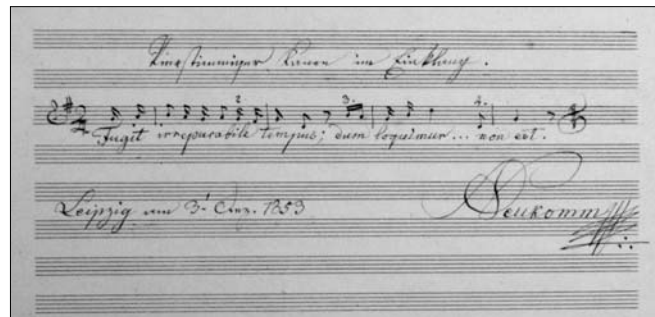 Vierstimmiger Kanon im Einklang.
2. 3. 4.
Fugit irreparabile tempus; dum loquimur... non est.
Leipzig am 3! Aug. 1853 Neukomm